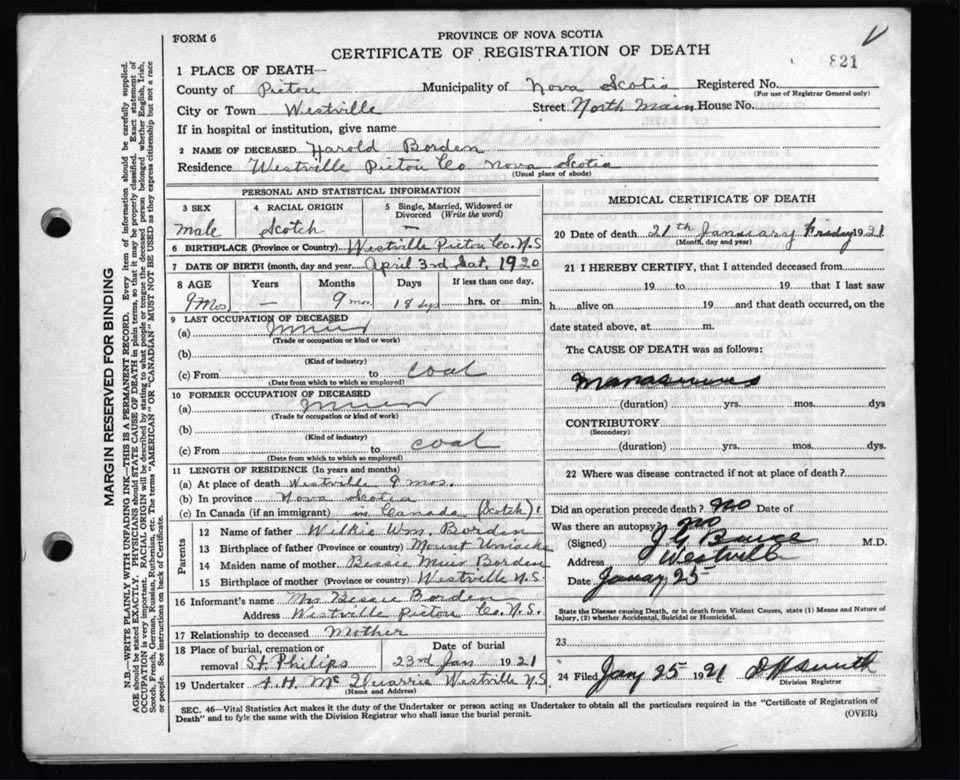 FORM 6
PROVINCE OF NOVA SCOTIA
CERTIFICATE OF REGISTRATION OF DEATH
821
1 PLACE OF DEATH—
County of Pictou Municipality of Nova Scotia Registered No.
(For use of Registrar General only)
City or Town Westville Street North Main House No.
If in hospital or institution, give name
2 NAME OF DECEASED Harold Borden
Residence Westville Pictou Co. Nova Scotia
(Usual place of abode)
PERSONAL AND STATISTICAL INFORMATION
3 SEX
male
4 RACIAL ORIGIN
Scotch
5 Single, Married, Widowed or Divorced (Write the word)
—
6 BIRTHPLACE (Province or Country) Westville Pictou Co. N.S
7 DATE OF BIRTH (month, day and year) April 3rd Sat, 1920
8 AGE Years Months Days If less than one day,
9 Mos — 9 mos 18 dys hrs. or min.
9 LAST OCCUPATION OF DECEASED
(a) miner
(Trade or occupation or kind or work)
(b)
(Kind of industry)
(c) From to coal
(Date from which to which so employed)
10 FORMER OCCUPATION OF DECEASED
(a) miner
(Trade or occupation or kind of work)
(b)
(Kind of industry)
(c) From to coal
(Date from which to which so employed)
11 LENGTH OF RESIDENCE (In years and months)
(a) At place of death Westville 9 mos.
(b) In province Nova Scotia
(c) In Canada (if an immigrant) in Canada (Scotch)
Parents
12 Name of father Wilkie Wm. Borden
13 Birthplace of father (Province or country) Mount Uniacke
14 Maiden name of mother Bessie Muir Borden
15 Birthplace of mother (Province or country) Westville N.S
16 Informant's name Mrs Bessie Borden
Address Westville Pictou Co. N.S.
17 Relationship to deceased Mother
18 Place of burial, cremation or removal St. Philips
Date of burial
23rd Jan 1921
19 Undertaker A. H. McQuarrie Westville N.S
(Name and Address)
MEDICAL CERTIFICATE OF DEATH
20 Date of death 21th January Friday 1921
(Month, day and year)
21 I HEREBY CERTIFY, that I attended deceased from
19 to 19 that I last saw
h alive on 19 and that death occurred, on the
date stated above, at m.
The CAUSE OF DEATH was as follows:
Marasmus
(duration) yrs. mos. dys
CONTRIBUTORY
(Secondary)
(duration) yrs. mos. dys.
22 Where was disease contracted if not at place of death?
Did an operation precede death? No Date of
Was there an autopsy? No
(Signed) M.D.
Address Westville
Date 25
State the Disease causing Death, or in death from Violent Causes, state (1) Means and Nature of
Injury, (2) whether Accidental, Suicidal or Homicidal.
23
24 Filed Jany 25 1921 Smith
Division Registrar
SEC. 46—Vital Statistics Act makes it the duty of the Undertaker or person acting as Undertaker to obtain all the particulars required in the "Certificate of Registration of
Death" and to fyle the same with the Division Registrar who shall issue the burial permit.
(OVER)
MARGIN RESERVED FOR BINDING
N.B.—WRITE PLAINLY WITH UNFADING INK—THIS IS A PERMANENT RECORD. Every item of information should be carefully supplied.
AGE should be stated EXACTLY. PHYSICIANS should STATE CAUSE OF DEATH in plain terms, so that it may be properly classified. Exact statement of
OCCUPATION is very important. RACIAL ORIGIN will be described by stating to what people or tongue the deceased person belonged whether English, Irish,
Scotch, French, German, Russian, Ruthenian, etc. The terms "AMERICAN" OR "CANADIAN" MUST NOT BE USED as they express citizenship but not a race
or people. See instructions on back of Certificate.